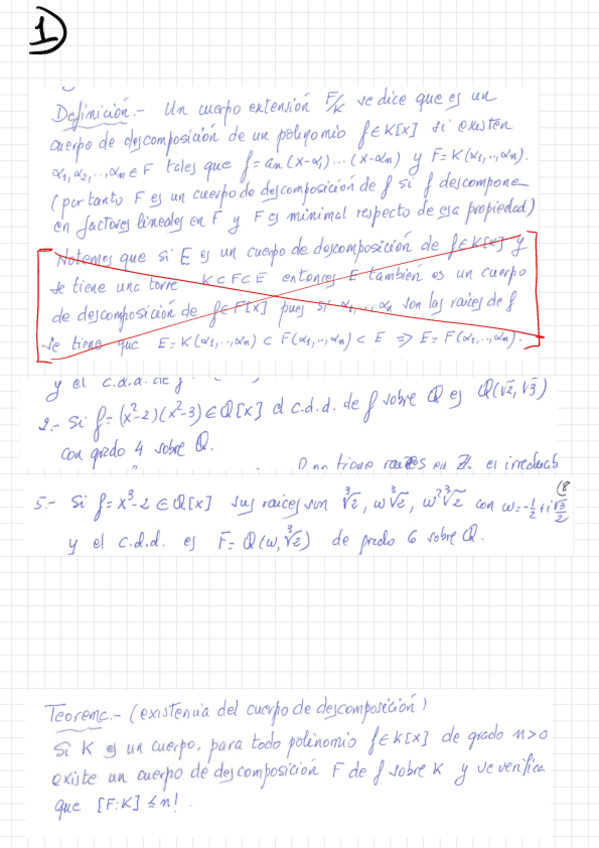 1)
Definición.- Un cuerpo extensión F/K se dice que es un
cuerpo de descomposición de un polinomio f∈K[x] si existen
α₁, α₂, .., αₙ ∈ F tales que f = aₙ(x-α₁)···(x-αₙ) y F = K(α₁,..,αₙ).
(por tanto F es un cuerpo de descomposición de f si f descompone
en factores lineales en F y F es minimal respecto de esa propiedad)
Notemos que si E es un cuerpo de descomposición de f∈K[x] y
se tiene una torre K⊂F⊂E entonces E también es un cuerpo
de descomposición de f∈F[x] pues si α₁,..,αₙ son las raices de f
se tiene que E = K(α₁,..,αₙ) ⊂ F(α₁,..,αₙ) ⊂ E ⇒ E = F(α₁,..,αₙ).
y el c.d.d.
2.- Si f = (x²-2)(x²-3) ∈ Q[x] el c.d.d. de f sobre Q es Q(√2, √3)
con grado 4 sobre Q.
no tiene raíces en
(8
5.- Si f = x³-2 ∈ Q[x] sus raices son ³√2, ω ³√2, ω² ³√2 con ω = -1/2 + i √3/2
y el c.d.d. es F = Q(ω, ³√2) de grado 6 sobre Q.
Teorema.- (existencia del cuerpo de descomposición)
Si K es un cuerpo, para todo polinomio f∈K[x] de grado n>0
existe un cuerpo de descomposición F de f sobre K y se verifica
que [F:K] ≤ n!